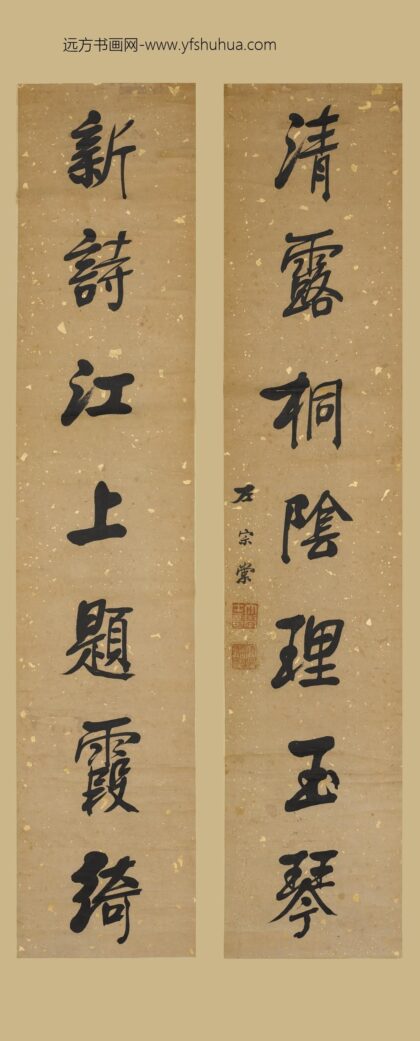 远方书画网-www.yfshuhua.com
清露桐陰理玉琴
左宗棠
新詩江上題霞綺